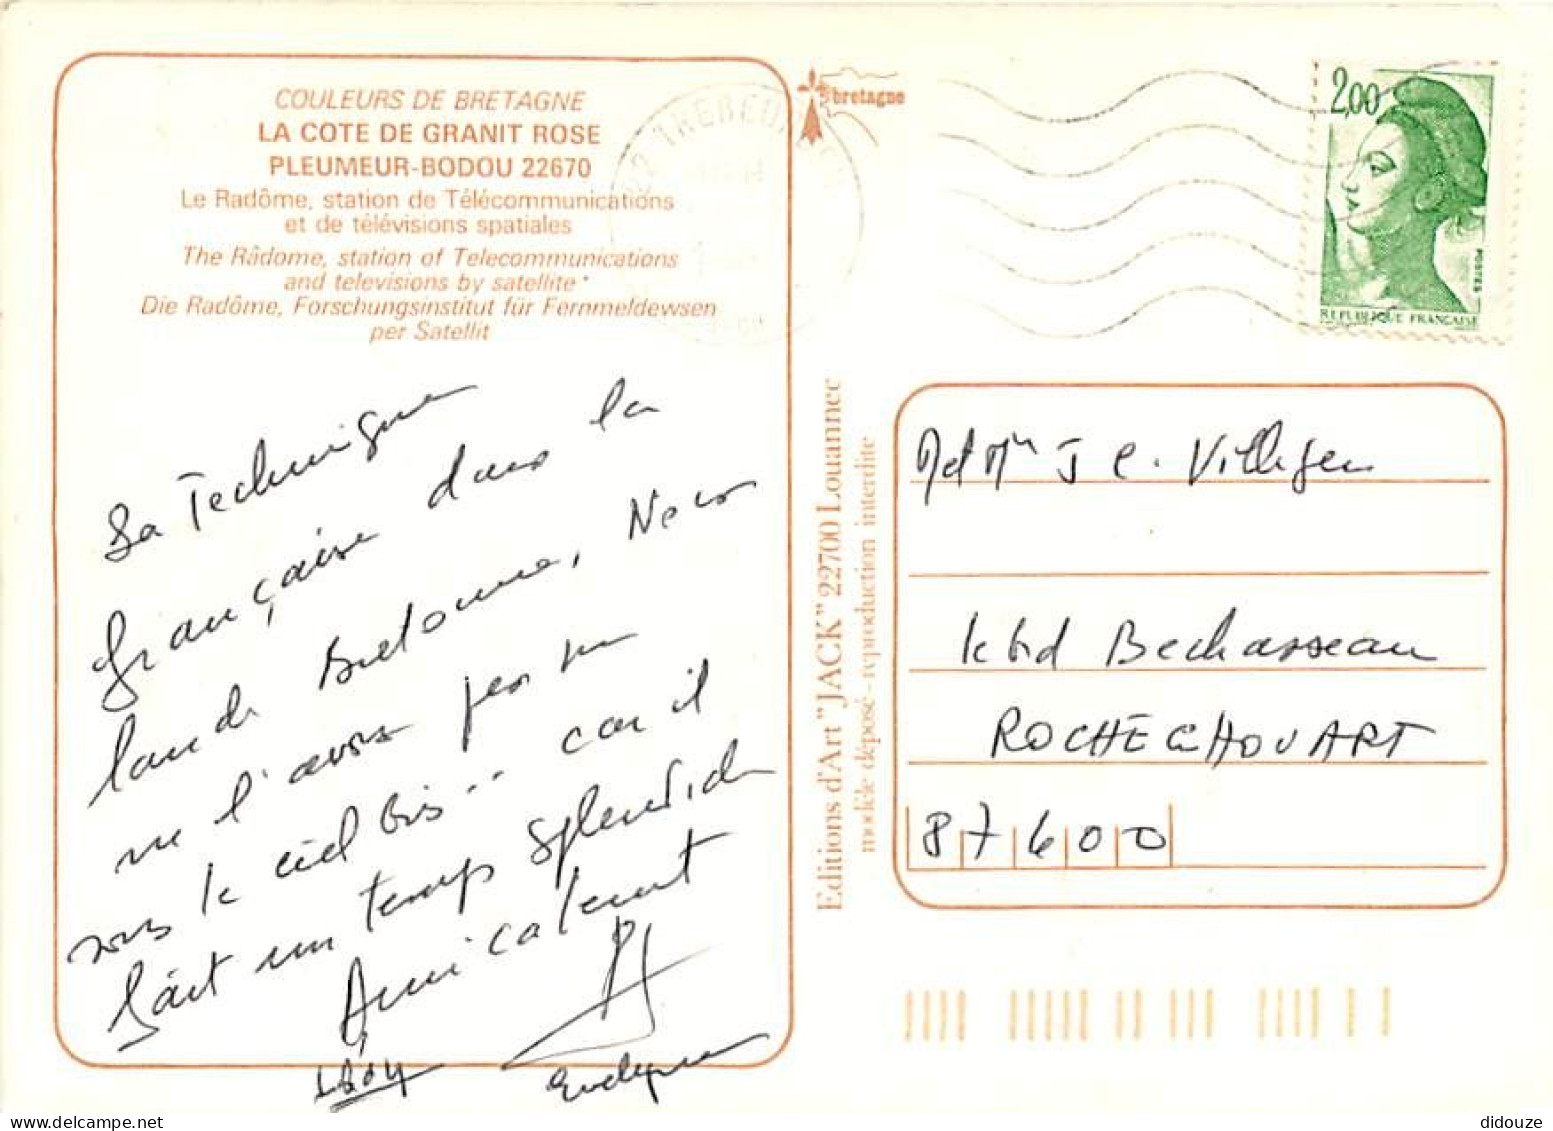 COULEURS DE BRETAGNE
LA COTE DE GRANIT ROSE
PLEUMEUR-BODOU 22670
Le Radôme, station de Télécommunications
et de télévisions spatiales
The Râdome, station of Telecommunications
and televisions by satellite
Die Radôme, Forschungsinstitut für Fernmeldewsen
per Satellit
La Technique
française dans la
lande Bretonne, Nous
ne l'avons pas vu
sous le ciel bis.. car il
fait un temps splendide
Amicalement
Evelyne
bretagne
22 TREBEURDEN
2,00
POSTES
REPUBLIQUE FRANÇAISE
Editions d'Art "JACK" 22700 Louannec
modèle déposé - reproduction interdite
J C. Villeger
bd Bechasseau
ROCHECHOUART
87600
didouze